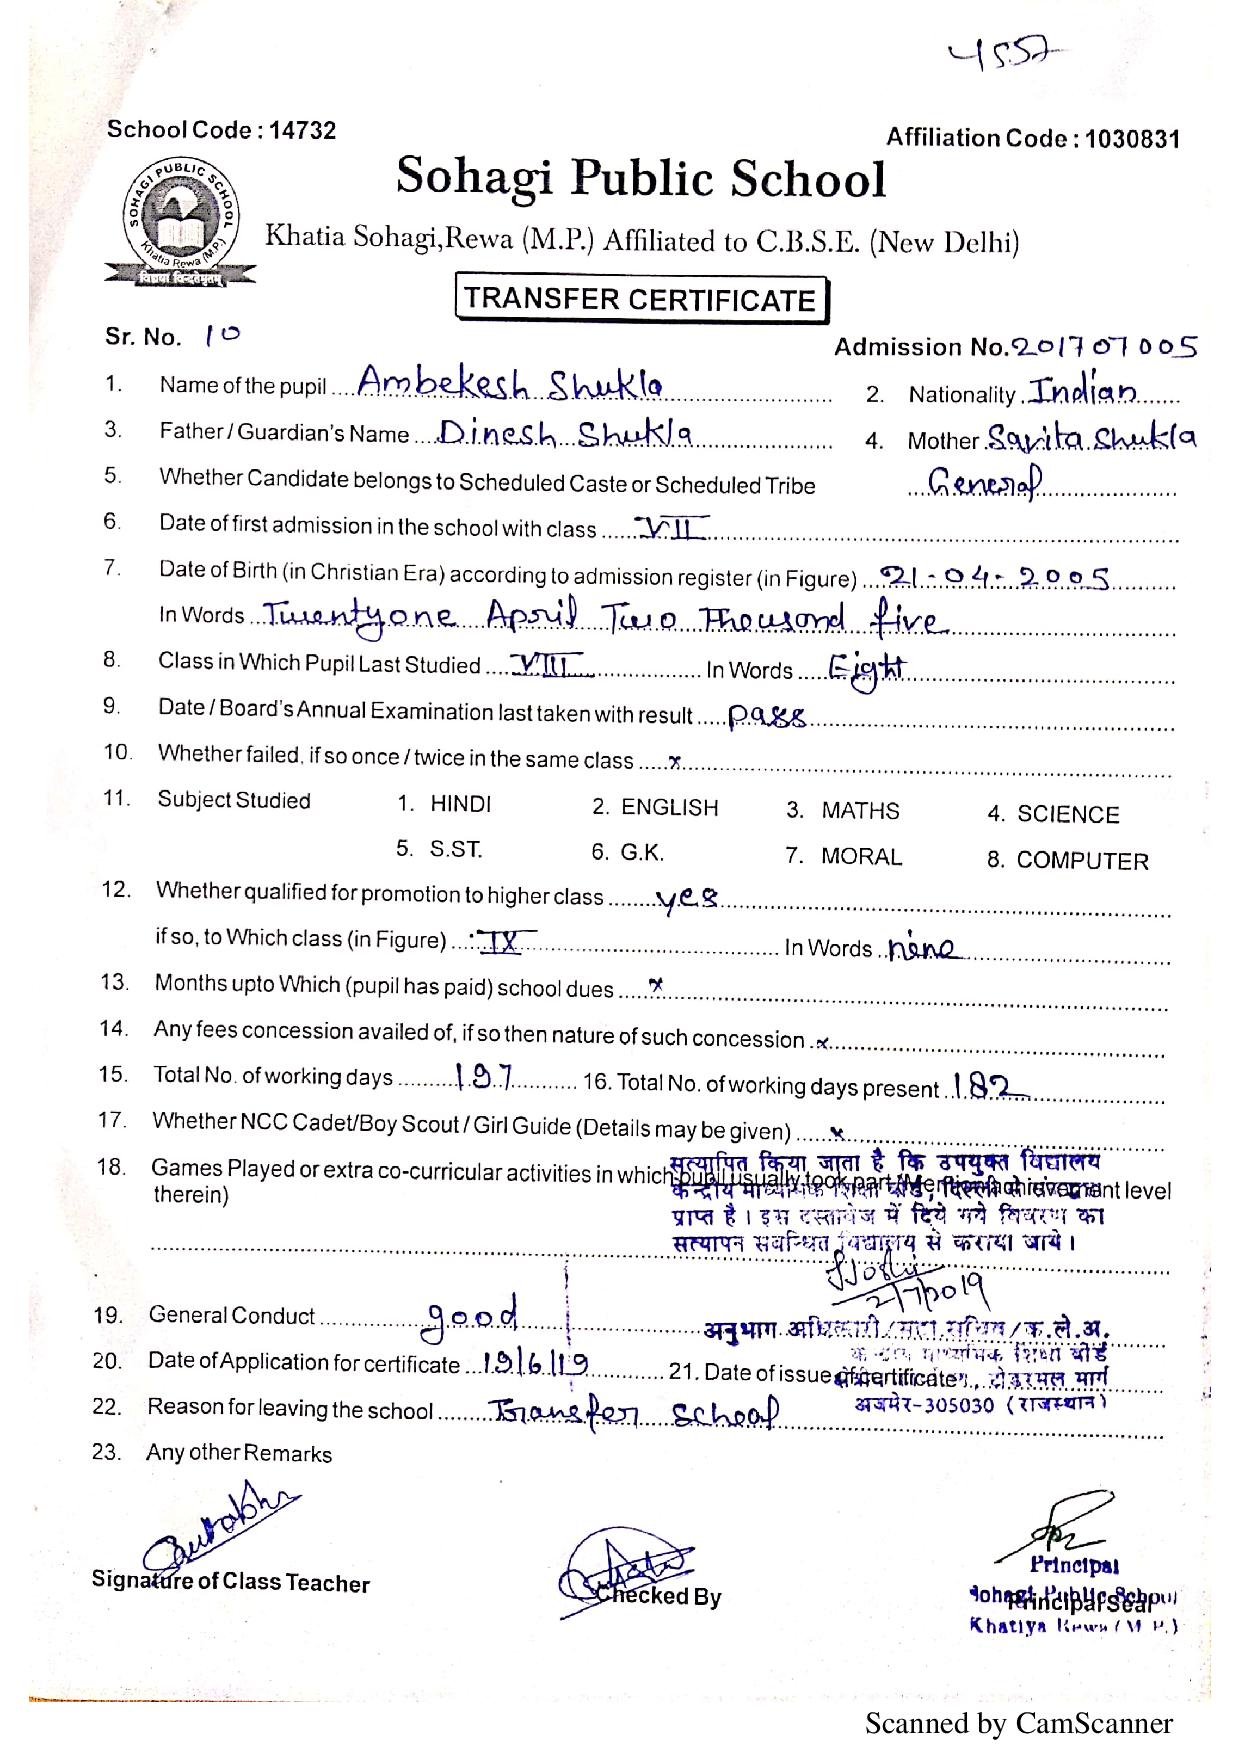 4557
School Code : 14732
Affiliation Code : 1030831
SOHAGI PUBLIC SCHOOL
Khatia Rewa (M.P.)
Sohagi Public School
Khatia Sohagi,Rewa (M.P.) Affiliated to C.B.S.E. (New Delhi)
TRANSFER CERTIFICATE
Sr. No. 10
Admission No.201707005
1. Name of the pupil ....Ambekesh Shukla 2. Nationality .Indian
3. Father / Guardian's Name ....Dinesh Shukla 4. Mother Savita Shukla
5. Whether Candidate belongs to Scheduled Caste or Scheduled Tribe ....General
6. Date of first admission in the school with class ......VII
7. Date of Birth (in Christian Era) according to admission register (in Figure) ...21-04-2005
In Words ..Twentyone April Two Thousand five
8. Class in Which Pupil Last Studied ....VIII In Words .....Eight
9. Date / Board's Annual Examination last taken with result .....pass
10. Whether failed, if so once / twice in the same class .....x
11. Subject Studied 1. HINDI 2. ENGLISH 3. MATHS 4. SCIENCE
5. S.ST. 6. G.K. 7. MORAL 8. COMPUTER
12. Whether qualified for promotion to higher class ........yes
if so, to Which class (in Figure) ...IX In Words ..nine
13. Months upto Which (pupil has paid) school dues .....x
14. Any fees concession availed of, if so then nature of such concession .x
15. Total No. of working days .........197........... 16. Total No. of working days present ..182
17. Whether NCC Cadet/Boy Scout / Girl Guide (Details may be given) .....x
सत्यापित किया जाता है कि उपयुक्त विद्यालय
18. Games Played or extra co-curricular activities in which pupil usually took part (Mention achievement level
केन्द्रीय माध्यमिक शिक्षा बोर्ड, दिल्ली से
therein)
प्राप्त है। इस दस्तावेज में दिये गये विवरण का
सत्यापन संबन्धित विद्यालय से कराया जाये।
2/7/2019
19. General Conduct ...............good
अनुभाग अधिकारी/सहा.सचिव/क.ले.अ.
के मा शिक्षा बोर्ड
20. Date of Application for certificate ...19/6/19............. 21. Date of issue of certificate
टोडरमल मार्ग
अजमेर-305030 (राजस्थान)
22. Reason for leaving the school .........Transfer School
23. Any other Remarks
Signature of Class Teacher
Checked By
Principal
Principal Seal
Sohagi Public School
Khatiya Rewa (M.P.)
Scanned by CamScanner